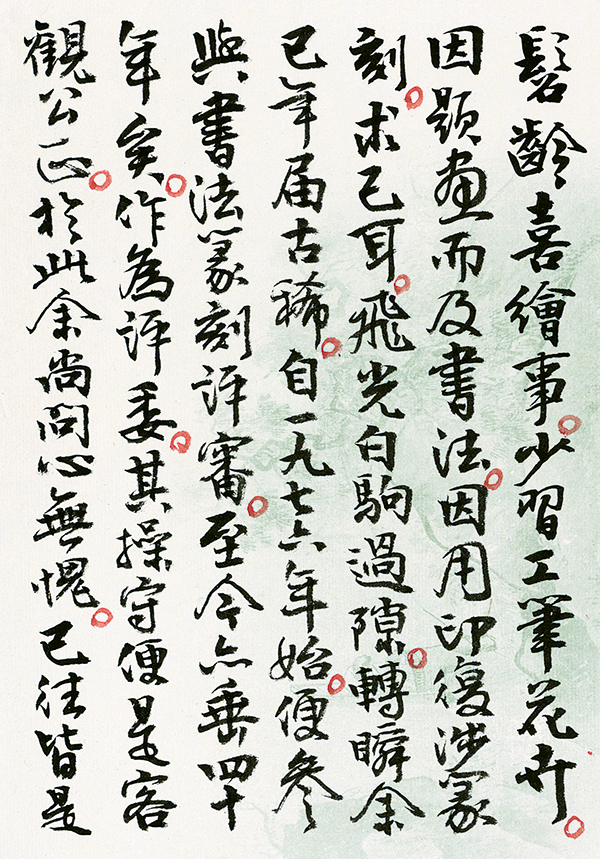 髫齡喜繪事少習工筆花卉
因題畫而及書法因用印復涉篆
刻求己耳飛光白駒過隙轉瞬余
已年届古稀自一九七六年始便參
與書法篆刻評審至今亦垂四十
年矣作為評委其操守便是客
觀公正於此余尚問心無愧已往皆是